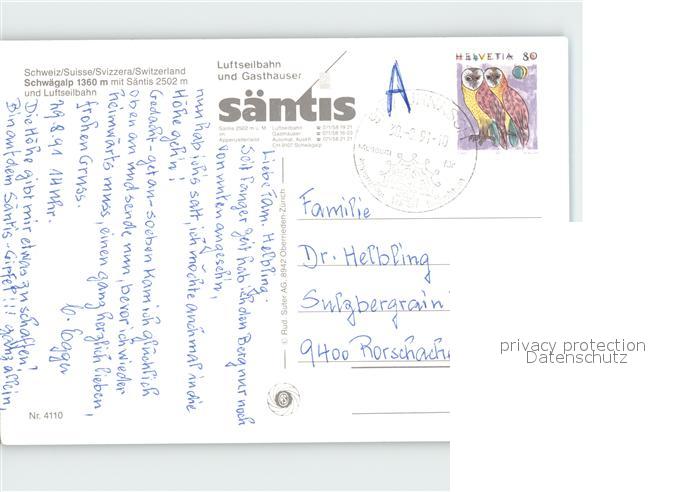 Schweiz/Suisse/Svizzera/Switzerland
Schwägalp 1360 m mit Säntis 2502 m
und Luftseilbahn
Luftseilbahn
und Gasthäuser
säntis
Säntis 2502 m ü. M.
im
Appenzellerland
Luftseilbahn ☎ 071/58 19 21
Gasthäuser
Automat. Auskft.
CH 9107 Schwägalp
A
HELVETIA 80
Museum für
Liebe Fam. Helbling.
Seit langer Zeit hab ich den Berg nur noch
von unten angesehn,
nun hab ich's satt, ich möchte auch mal in die
Höhe gehn!
Gedacht - getan - soeben kam ich glücklich
oben an und sende nun, bevor ich wieder
heimwärts muss, einen ganz herzlich lieben,
frohen Gruss.
29.8.91 14 Uhr.
Die Höhe gibt mir etwas zu schaffen,
Bin auf dem Säntis-Gipfel!!! ganz allein,
© Rud. Suter AG, 8942 Oberrieden-Zürich
Familie
Dr. Helbling
Sulzbergrain
9400 Rorschach
Nr. 4110
privacy protection
Datenschutz